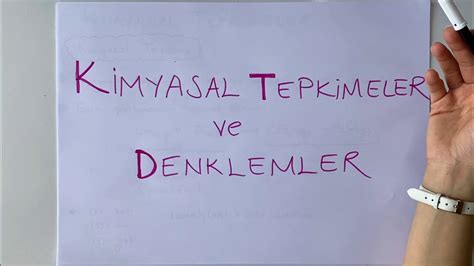 KİMYASAL TEPKİMELER
ve
DENKLEMLER